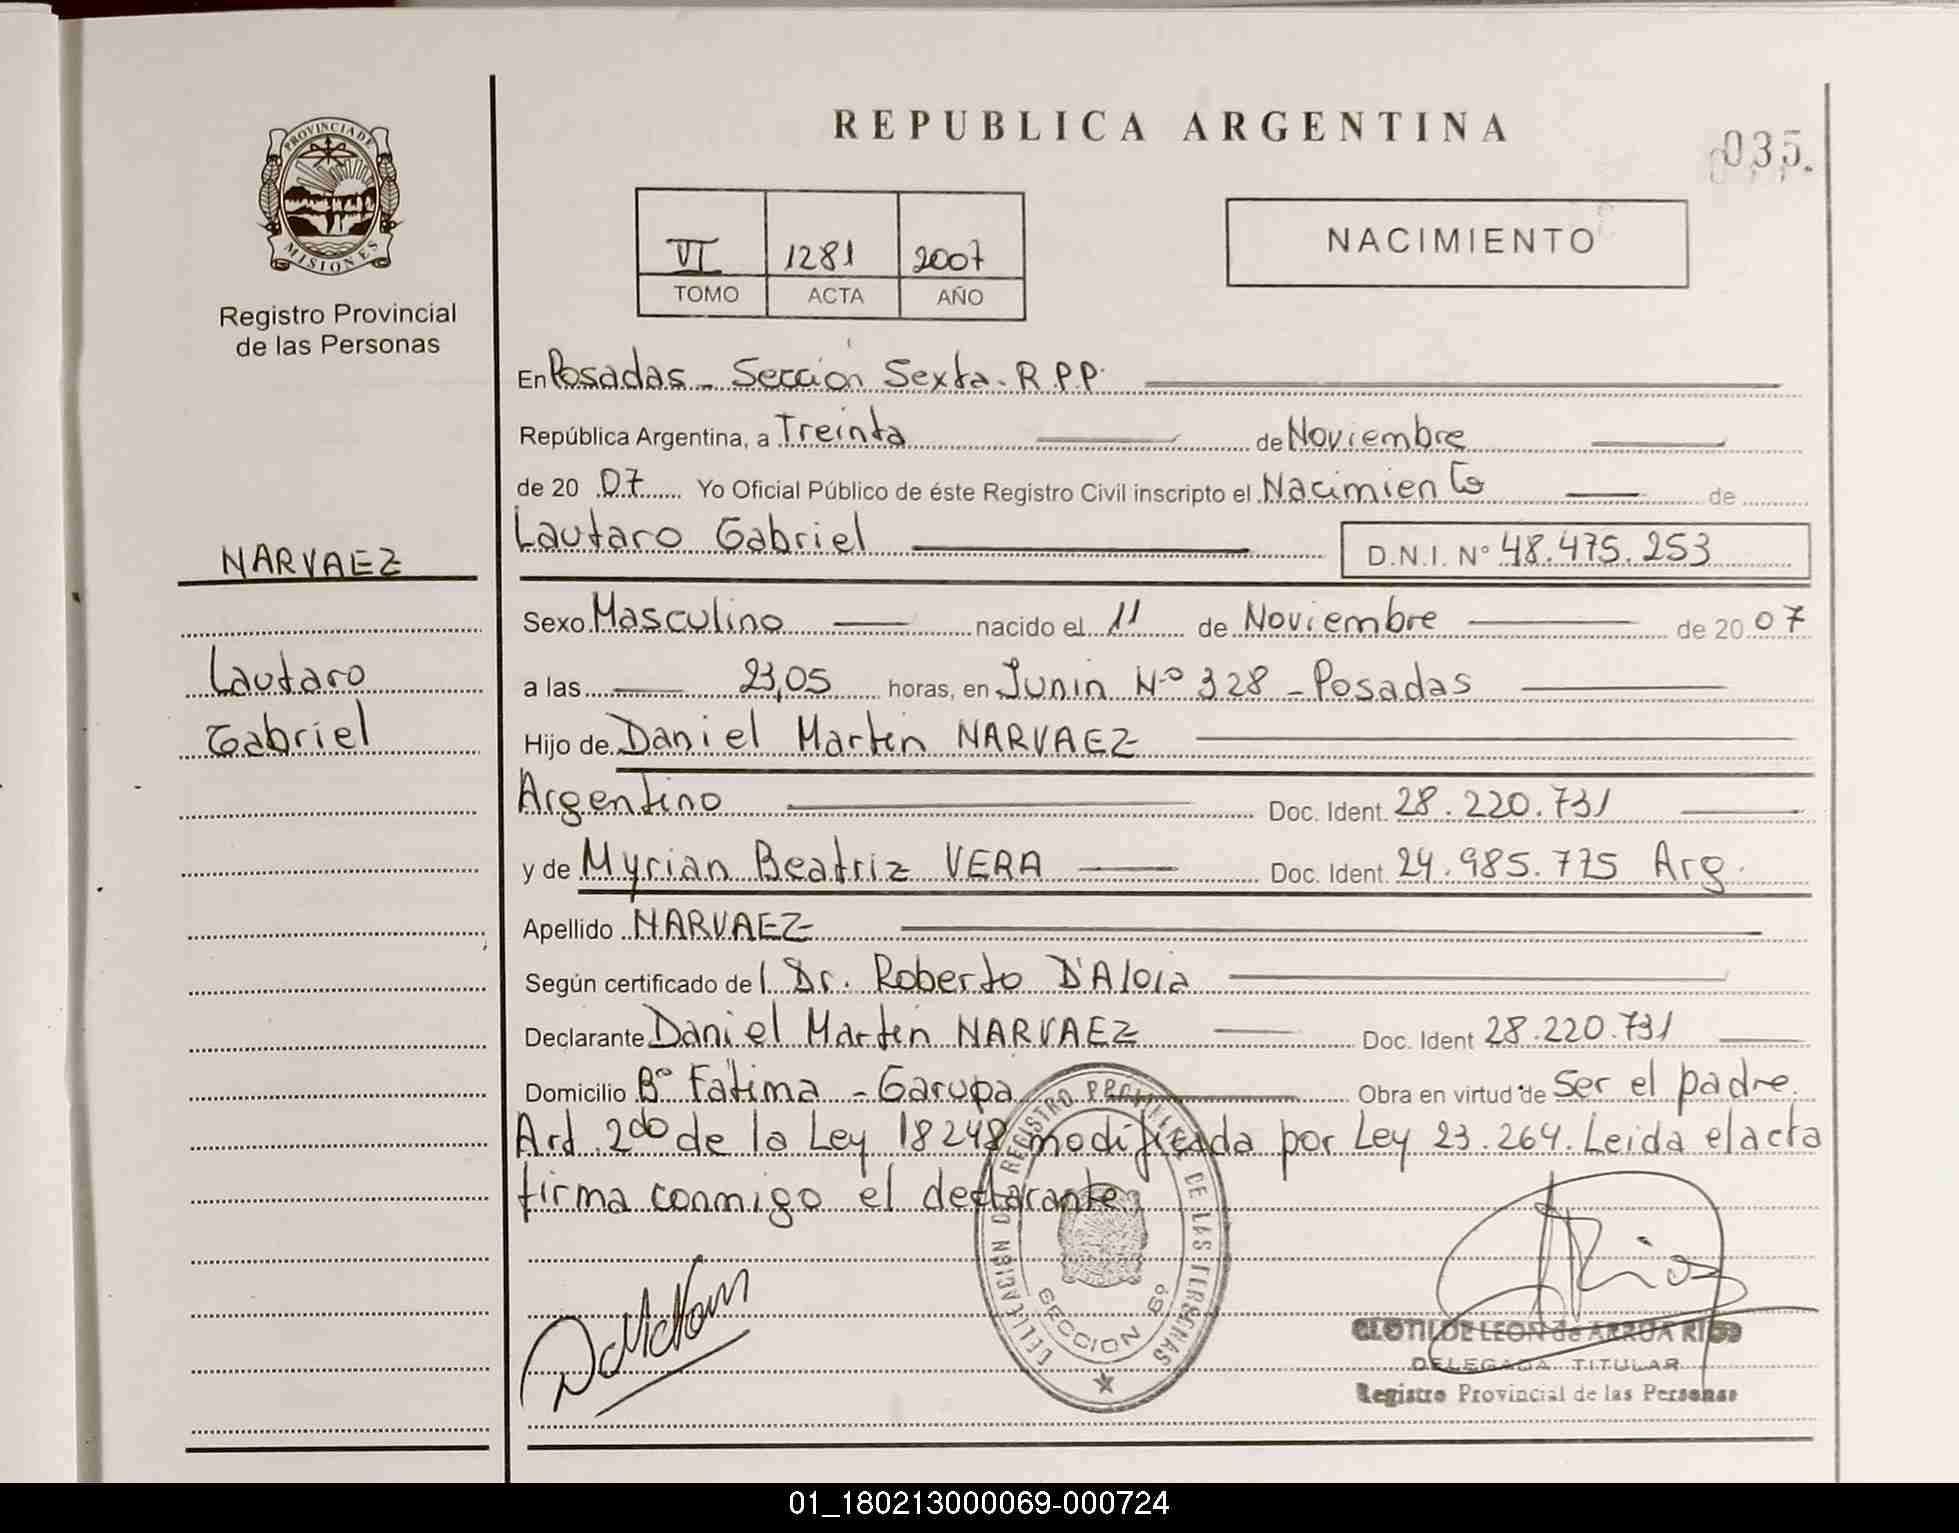 PROVINCIA DE
MISIONES
Registro Provincial
de las Personas
NARVAEZ
Lautaro
Gabriel
REPUBLICA ARGENTINA
035.
VI 1281 2007
TOMO ACTA AÑO
NACIMIENTO
En Posadas - Sección Sexta - R.P.P.
República Argentina, a Treinta de Noviembre
de 20 07 Yo Oficial Público de éste Registro Civil inscripto el Nacimiento de
Lautaro Gabriel D.N.I. N° 48.475.253
Sexo Masculino nacido el 11 de Noviembre de 20 07
a las 23,05 horas, en Junin Nº 328 - Posadas
Hijo de Daniel Martin NARVAEZ
Argentino Doc. Ident. 28.220.731
y de Myrian Beatriz VERA Doc. Ident. 24.985.775 Arg.
Apellido NARVAEZ
Según certificado de l Dr. Roberto D'Aloia
Declarante Daniel Martin NARVAEZ Doc. Ident 28.220.731
Domicilio Bº Fátima - Garupa Obra en virtud de Ser el padre.
Art. 2do de la Ley 18248 modificada por Ley 23.264. Leida el acta
firma conmigo el declarante
REGISTRO DE LAS PERSONAS
SECCION 6º
CLOTILDE LEON de ARRUA RIOS
DELEGADA TITULAR
Registro Provincial de las Personas
01_180213000069-000724